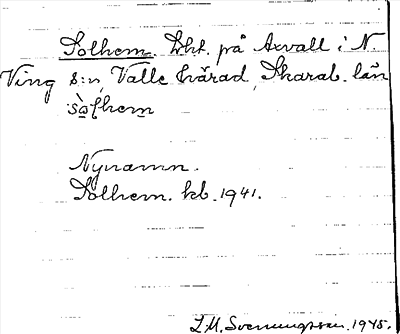 Solhem. Lht. på Axvall i N.
Ving s:n, Valle härad, Skarab. län
Nynamn.
Solhem. kb. 1941.
L.M. Svenungsson. 1945.